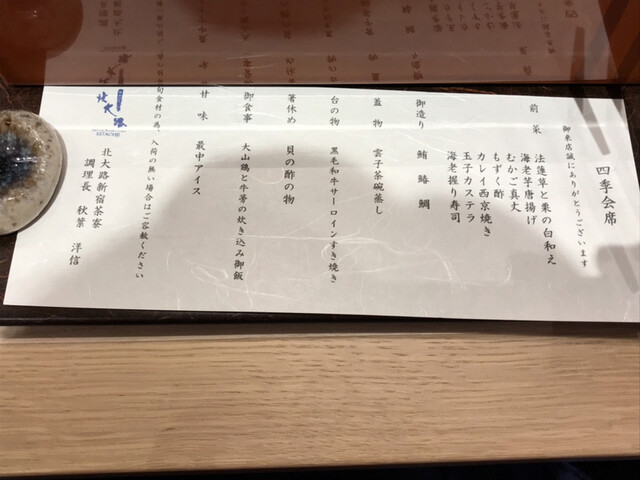 四季会席
御来店誠にありがとうございます
前菜
法蓮草と栗の白和え
海老芋唐揚げ
むかご真丈
もずく酢
カレイ西京焼き
玉子カステラ
海老握り寿司
御造り 鮪 鰆 鯛
蓋物 雲子茶碗蒸し
台の物 黒毛和牛サーロインすき焼き
箸休め 貝の酢の物
御食事 大山鶏と牛蒡の炊き込み御飯
甘味 最中アイス
旬食材の為、入荷の無い場合はご容赦ください
北大路
KITAOHJI
北大路新宿茶寮
調理長 秋葉 洋信